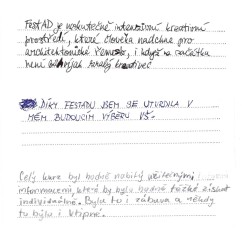 FestAD je neskutečně intensivní kreativní
prostředí, které člověka nadchne pro
architektonické řemeslo, i když na začátku
není nijak zvalý kreativec
DÍKY FESTADU JSEM SE UTVRDILA V
MÉM BUDOUCÍM VÝBĚRU VŠ.
Celý kurz byl hodně nabitý užitečnými
informacemi, které by bylo hodně těžké získat
individuálně. Byla tu i zábava a někdy
tu bylo i vtipné.